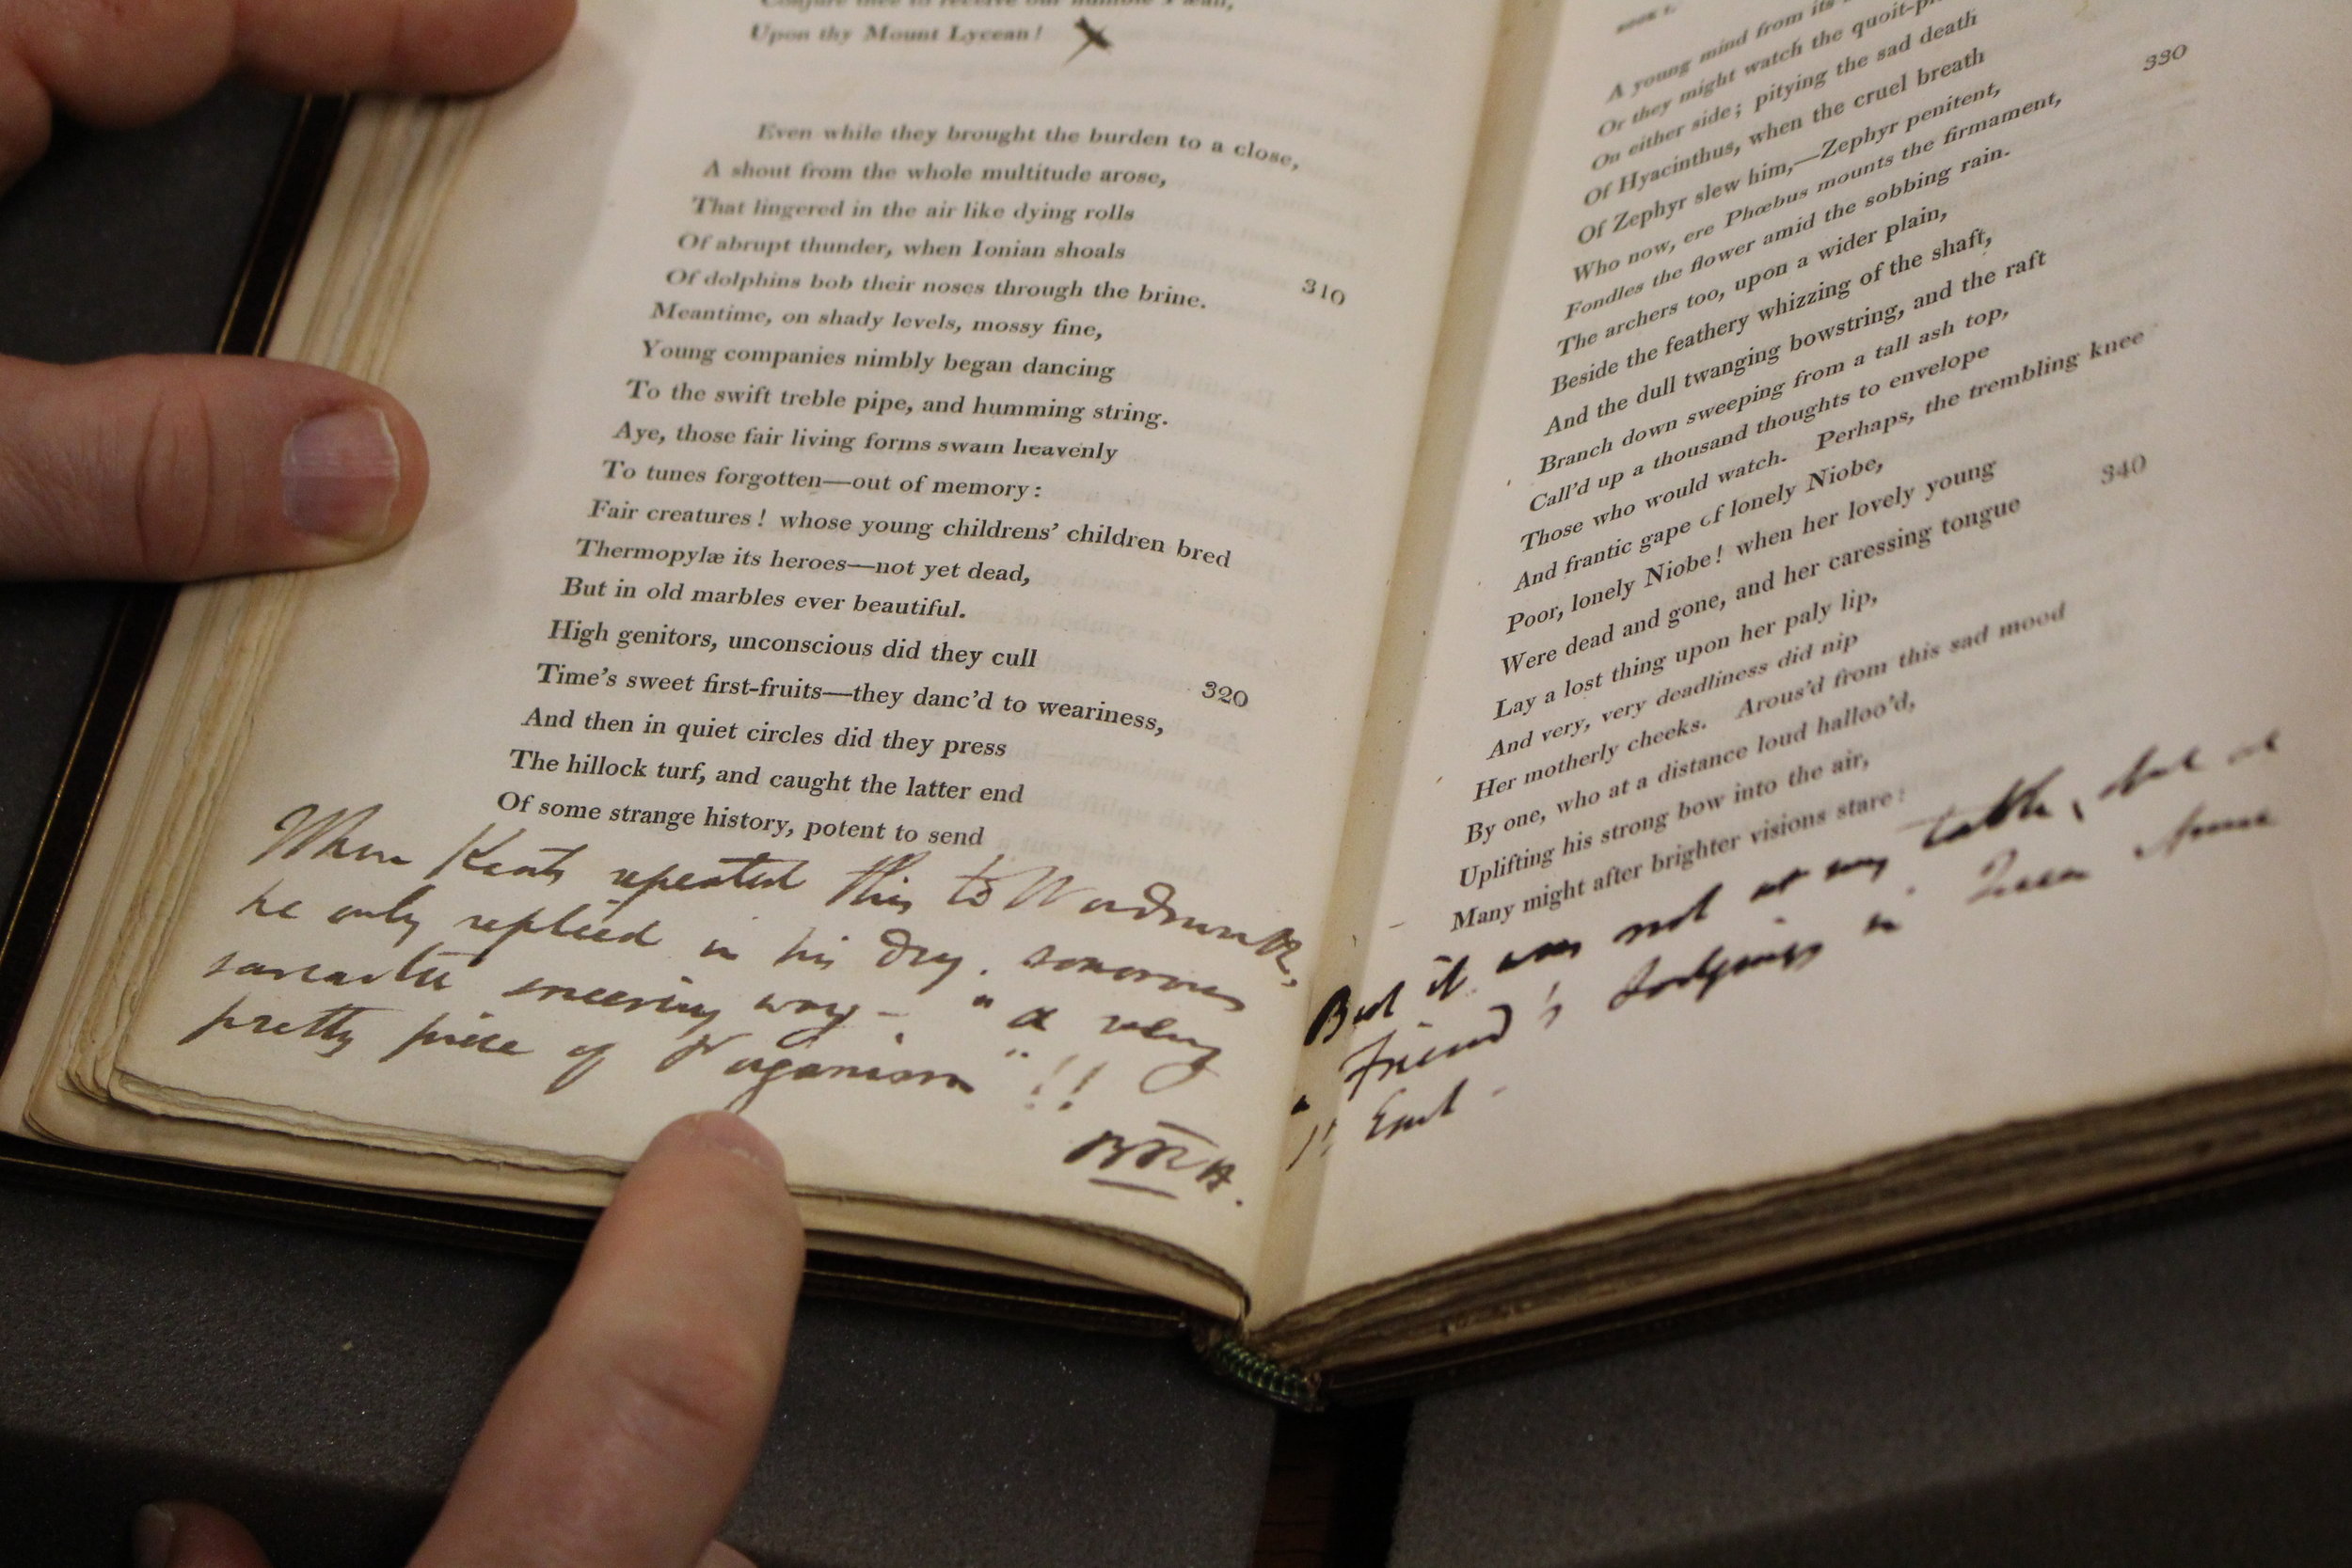 Conjure thee to receive our humble Pæan,
Upon thy Mount Lycean!
Even while they brought the burden to a close,
A shout from the whole multitude arose,
That lingered in the air like dying rolls
Of abrupt thunder, when Ionian shoals
Of dolphins bob their noses through the brine. 310
Meantime, on shady levels, mossy fine,
Young companies nimbly began dancing
To the swift treble pipe, and humming string.
Aye, those fair living forms swam heavenly
To tunes forgotten—out of memory:
Fair creatures! whose young childrens' children bred
Thermopylæ its heroes—not yet dead,
But in old marbles ever beautiful.
High genitors, unconscious did they cull
Time's sweet first-fruits—they danc'd to weariness, 320
And then in quiet circles did they press
The hillock turf, and caught the latter end
Of some strange history, potent to send
When Keats repeated this to Wordsworth,
he only replied in his dry. sonorous
sarcastic sneering way— "a very
pretty piece of Paganism"!!
BRH.
A young mind from its
Or they might watch the quoit-
On either side; pitying the sad death
Of Hyacinthus, when the cruel breath
Of Zephyr slew him,—Zephyr penitent,
Who now, ere Phœbus mounts the firmament, 330
Fondles the flower amid the sobbing rain.
The archers too, upon a wider plain,
Beside the feathery whizzing of the shaft,
And the dull twanging bowstring, and the raft
Branch down sweeping from a tall ash top,
Call'd up a thousand thoughts to envelope
Those who would watch. Perhaps, the trembling knee
And frantic gape of lonely Niobe,
Poor, lonely Niobe! when her lovely young
Were dead and gone, and her caressing tongue 340
Lay a lost thing upon her paly lip,
And very, very deadliness did nip
Her motherly cheeks. Arous'd from this sad mood
By one, who at a distance loud halloo'd,
Uplifting his strong bow into the air,
Many might after brighter visions stare:
But it was not at my table, but at
a Friend's Lodgings in Queen Anne
St East—